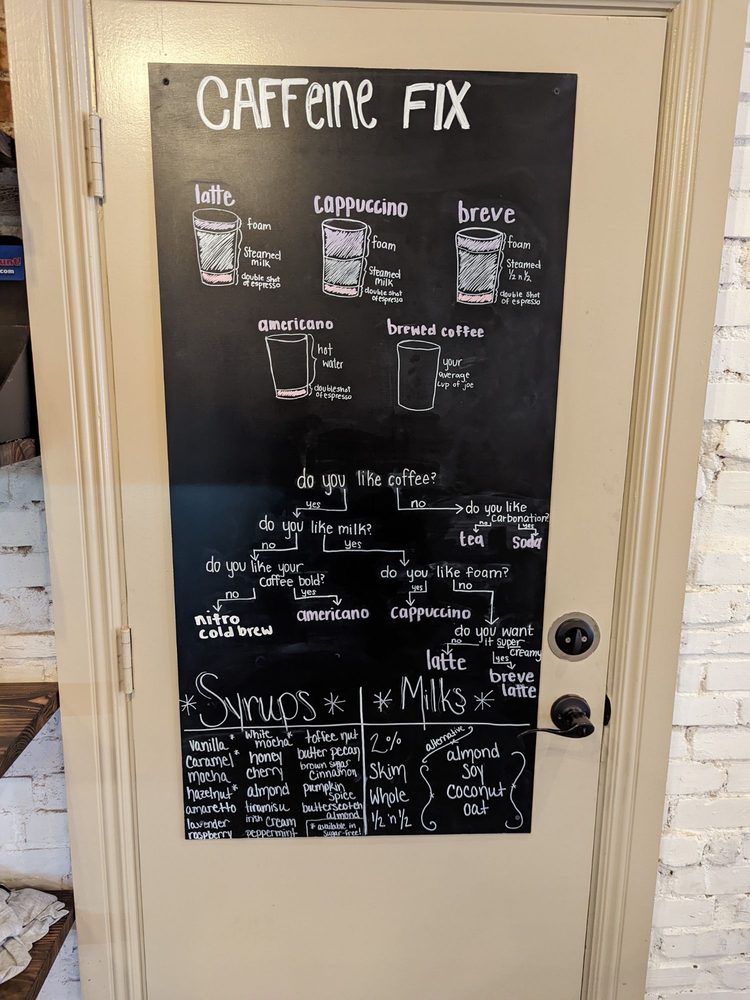 CAFFeINE FIX
latte
foam
Steamed
milk
double shot
of espresso
cappuccino
foam
Steamed
milk
double shot
of espresso
breve
foam
Steamed
½ n ½
double shot
of espresso
americano
hot
water
double shot
of espresso
brewed coffee
your
average
cup of joe
do you like coffee?
yes
no
do you like
carbonation?
no
yes
tea
soda
do you like milk?
no
yes
do you like your
coffee bold?
no
yes
nitro
cold brew
americano
do you like foam?
yes
no
cappuccino
do you want
it super
creamy
no
yes
latte
breve
latte
* Syrups *
vanilla*
caramel*
mocha
hazelnut*
amaretto
lavender
raspberry
white
mocha*
honey
cherry
almond
tiramisu
irish cream
peppermint
toffee nut
butter pecan
brown sugar
cinnamon
pumpkin
spice
butterscotch
almond
* available in
sugar-free!
* Milks *
2%
Skim
Whole
½ 'n ½
alternative
almond
soy
coconut
oat
.com